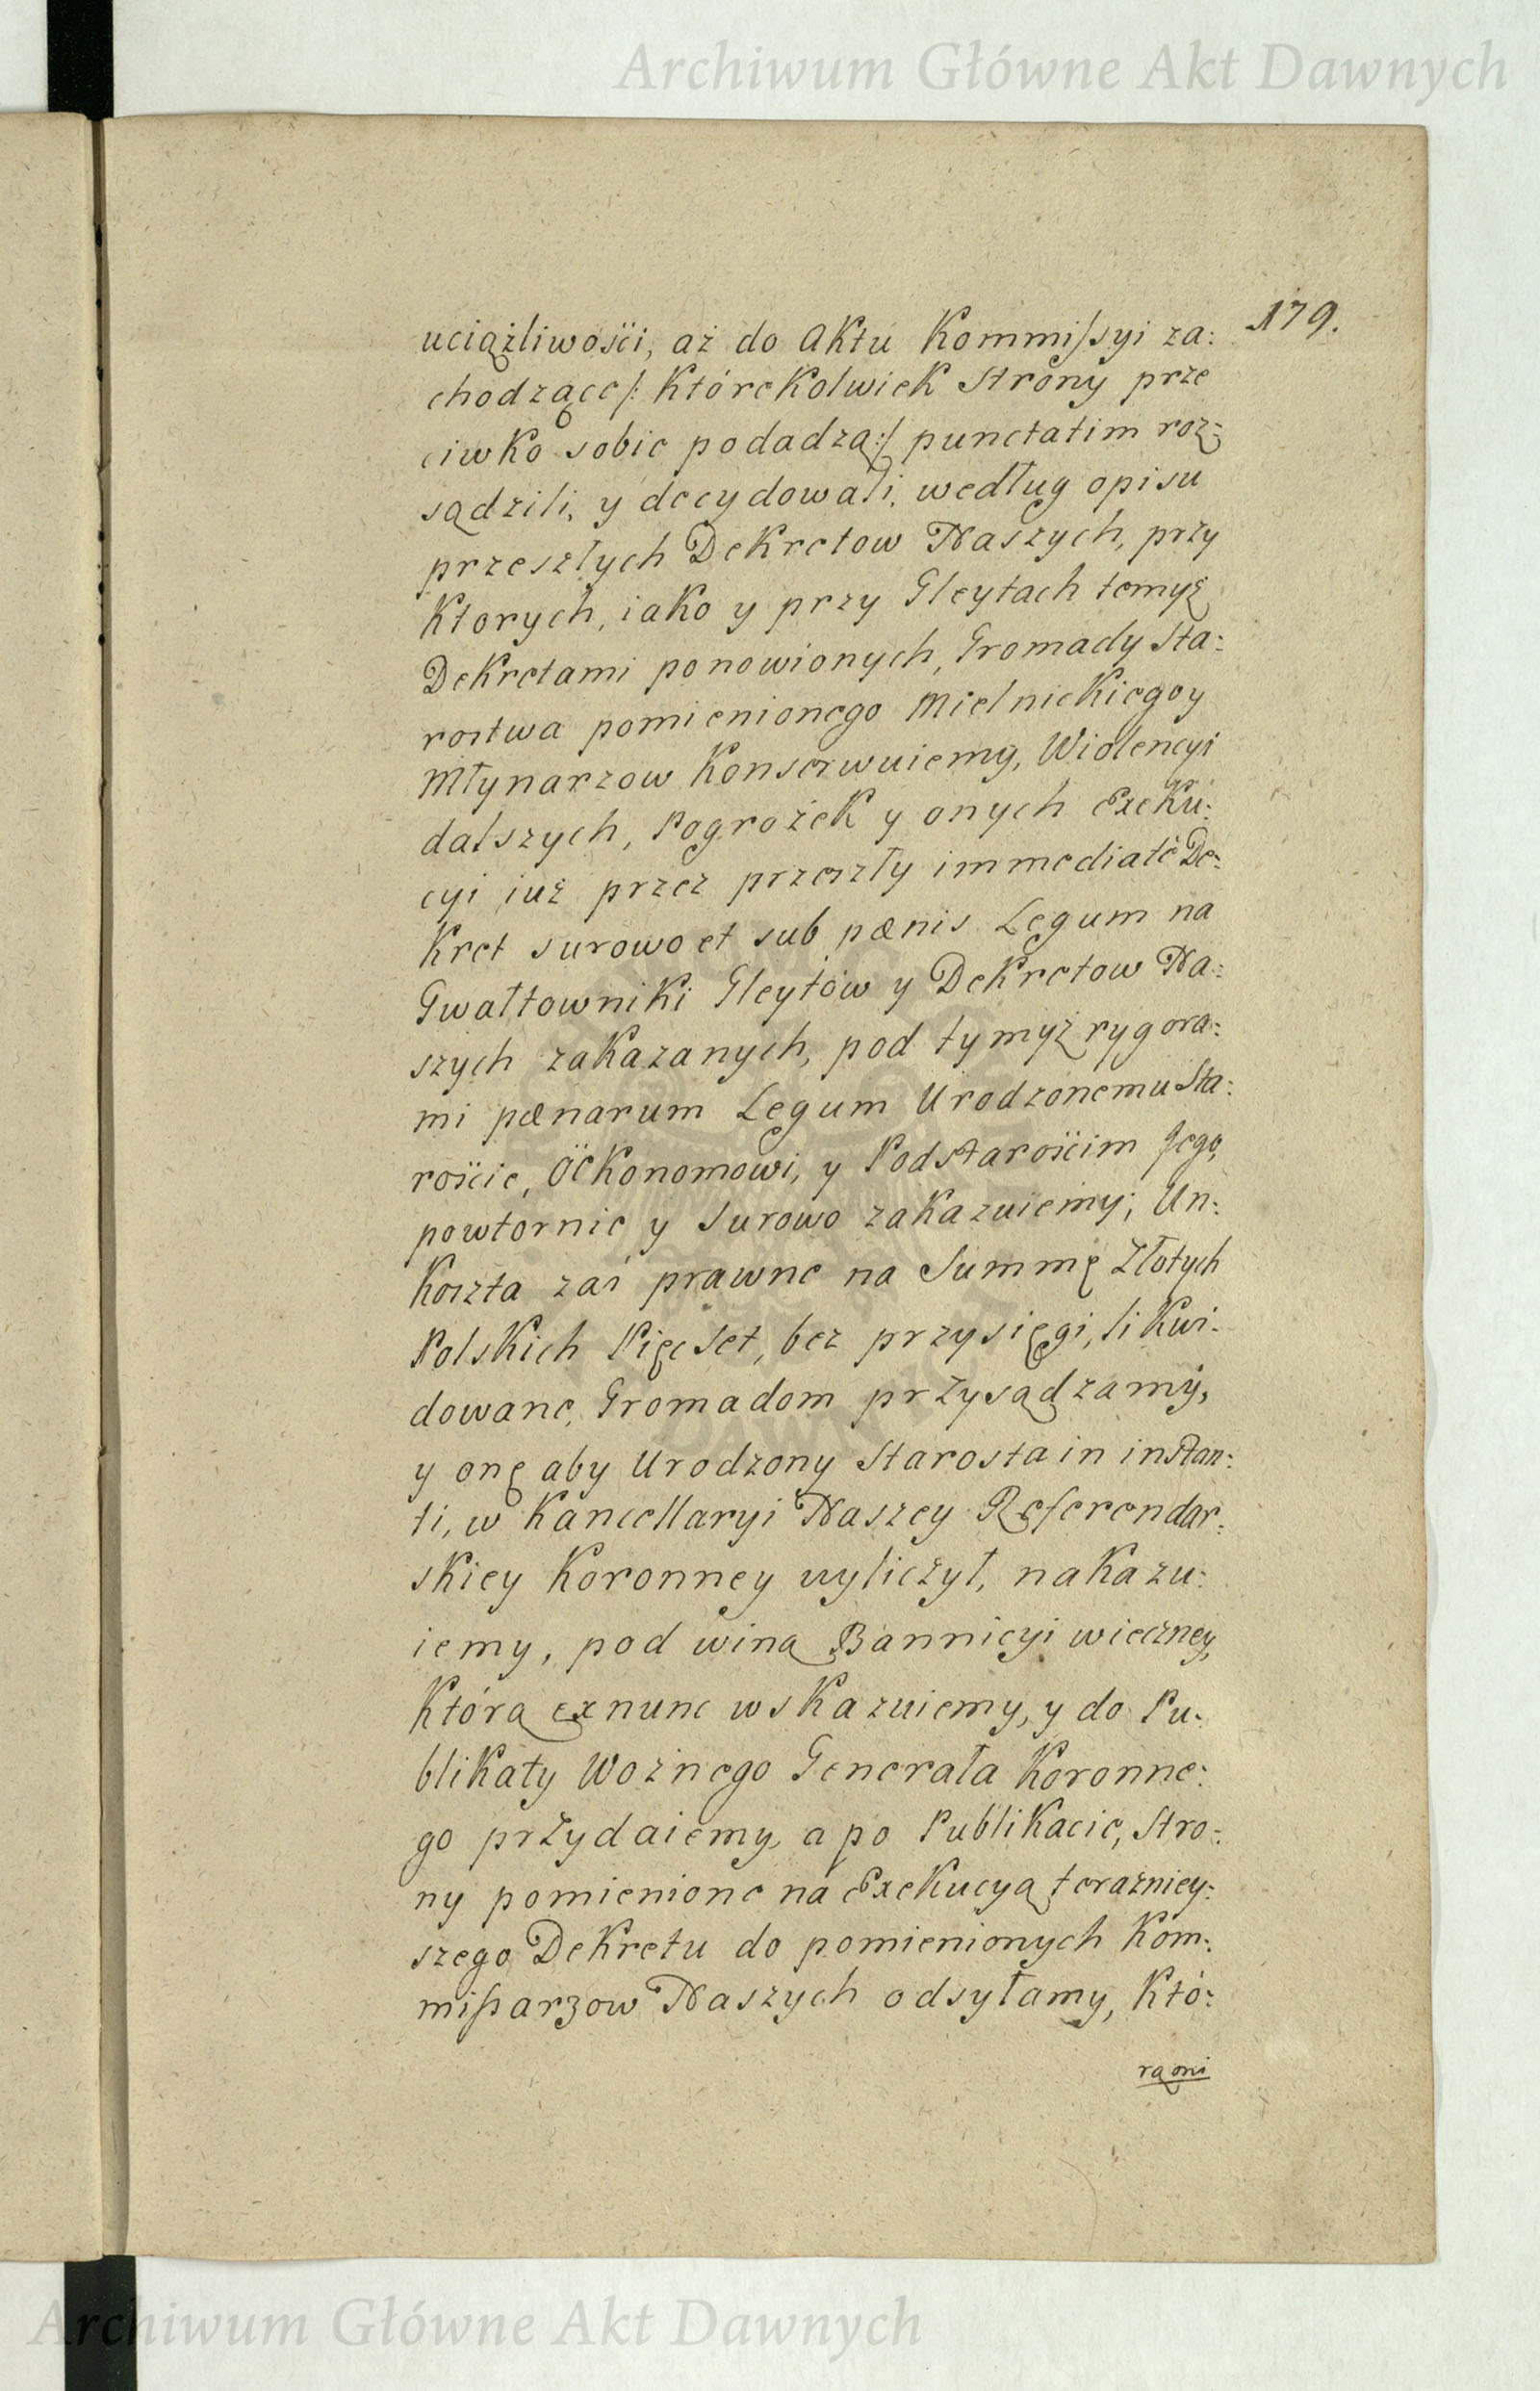 Archiwum Główne Akt Dawnych
179.
uciążliwości, aż do Aktu Kommissyi za:
chodzące /: którekolwiek Strony prze
ciwko sobie podadzą :/ punctatim roz:
sądzili, y decydowali, według opisu
przeszłych Dekretow Naszych, przy
ktorych, iako y przy Gleytach temyż
Dekretami ponowionych, Gromady Sta:
rostwa pomienionego Mielnickiego y
Młynarzow konserwuiemy, Wiolencyi
dalszych, Pogrożek y onych Exeku:
cyi iuż przez przeszły immediatè De:
kret surowo et sub pœnis Legum na
Gwałtowniki Gleytów y Dekretow Na:
szych zakazanych, pod tymyż rygora:
mi pœnarum Legum Urodzonemu Sta:
roście, Oekonomowi, y Podstarościm Jego,
powtornie y surowo zakazuiemy; Un:
koszta zaś prawne na Summę Złotych
Polskich Pięcset, bez przysięgi, likwi:
dowane, Gromadom przysądzamy,
y onę aby Urodzony Starosta in instan:
ti, w Kancellaryi Naszey Referendar:
skiey Koronney wyliczył, nakazu:
iemy, pod winą Bannicyi wieczney,
którą ex nunc wskazuiemy, y do Pu:
blikaty Woźnego Generała Koronne:
go przydaiemy, a po Publikacie, Stro:
ny pomienione na Exekucyą teraźniey:
szego Dekretu do pomienionych Kom:
missarzow Naszych odsyłamy, Któ:
rą oni
Archiwum Główne Akt Dawnych